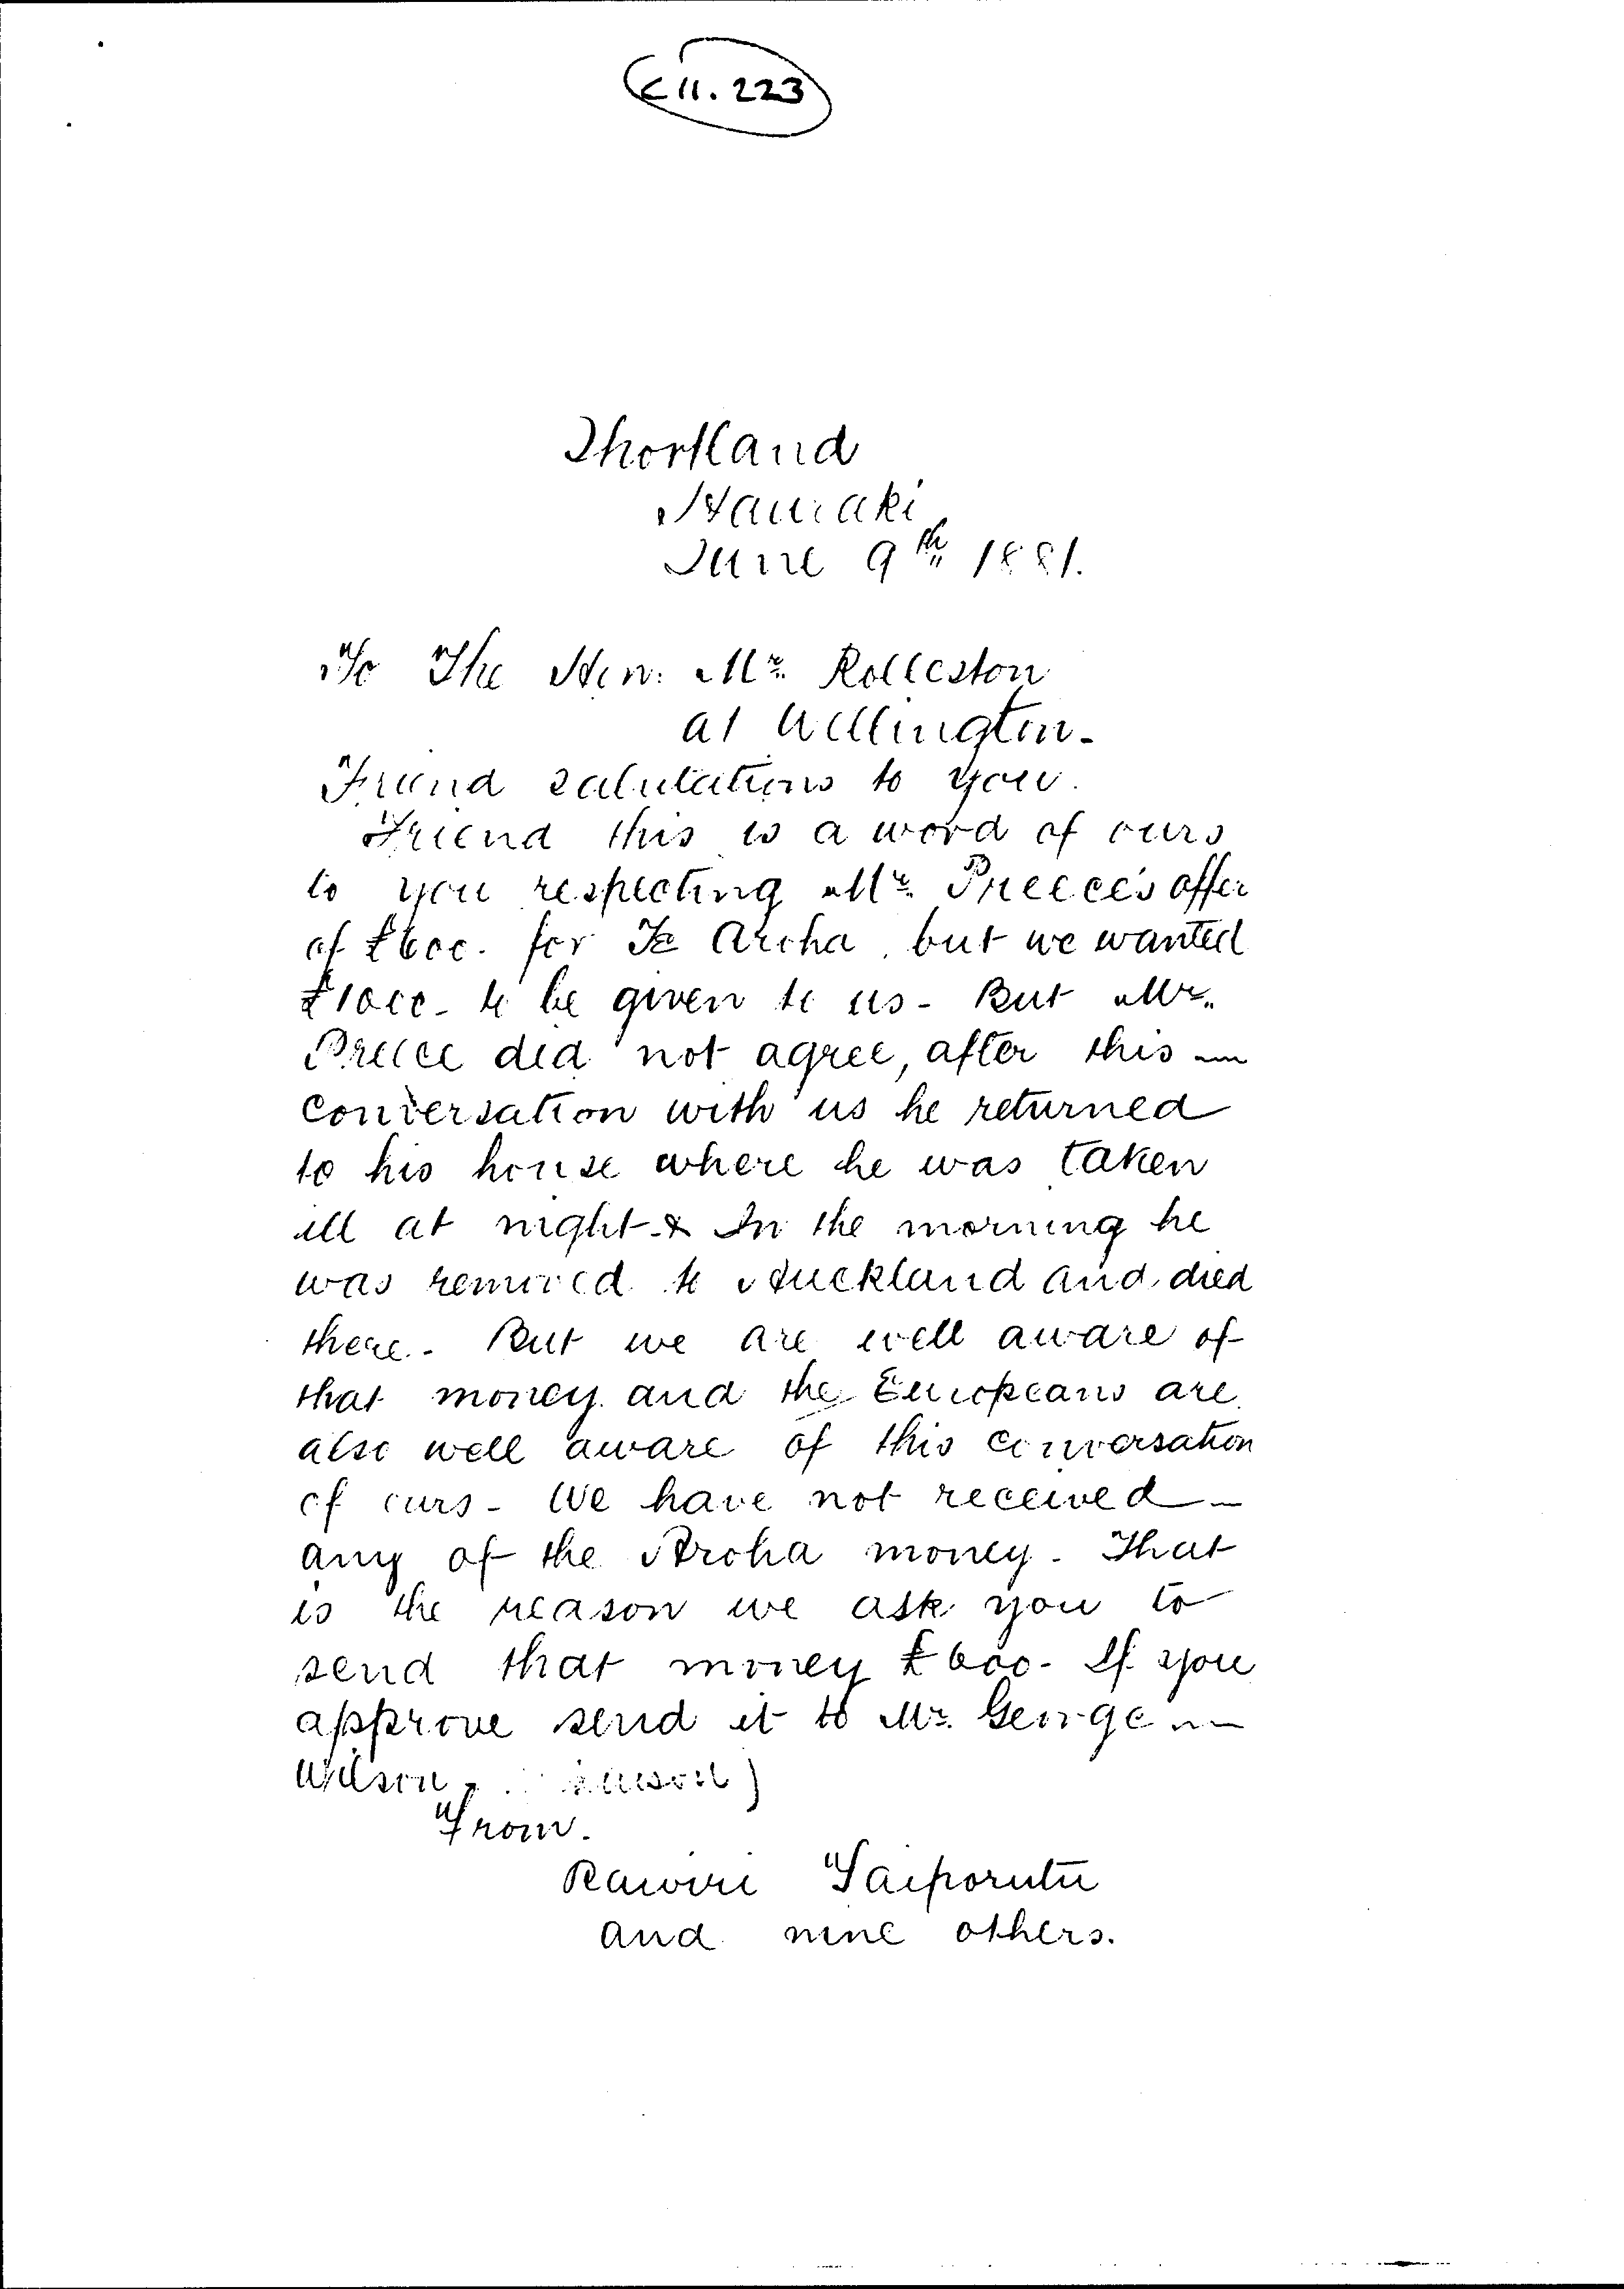 E 11. 223
Shortland
Hauraki
June 9th 1881.
To The Hon: Mr. Rolleston
at Wellington-
Friend salutations to you.
Friend this is a word of ours
to you respecting Mr. Preece's offer
of £600. for Te Aroha, but we wanted
£1000- to be given to us- But Mr.
Preece did not agree, after this
conversation with us he returned
to his house where he was taken
ill at night & In the morning he
was removed to Auckland and died
there.- But we are well aware of
that money and the Europeans are
also well aware of this conversation
of ours- We have not received
any of the Aroha money- That
is the reason we ask you to
send that money £600- If you
approve send it to Mr. George
Wilson
From.
Rawiri Taiporutu
and nine others.